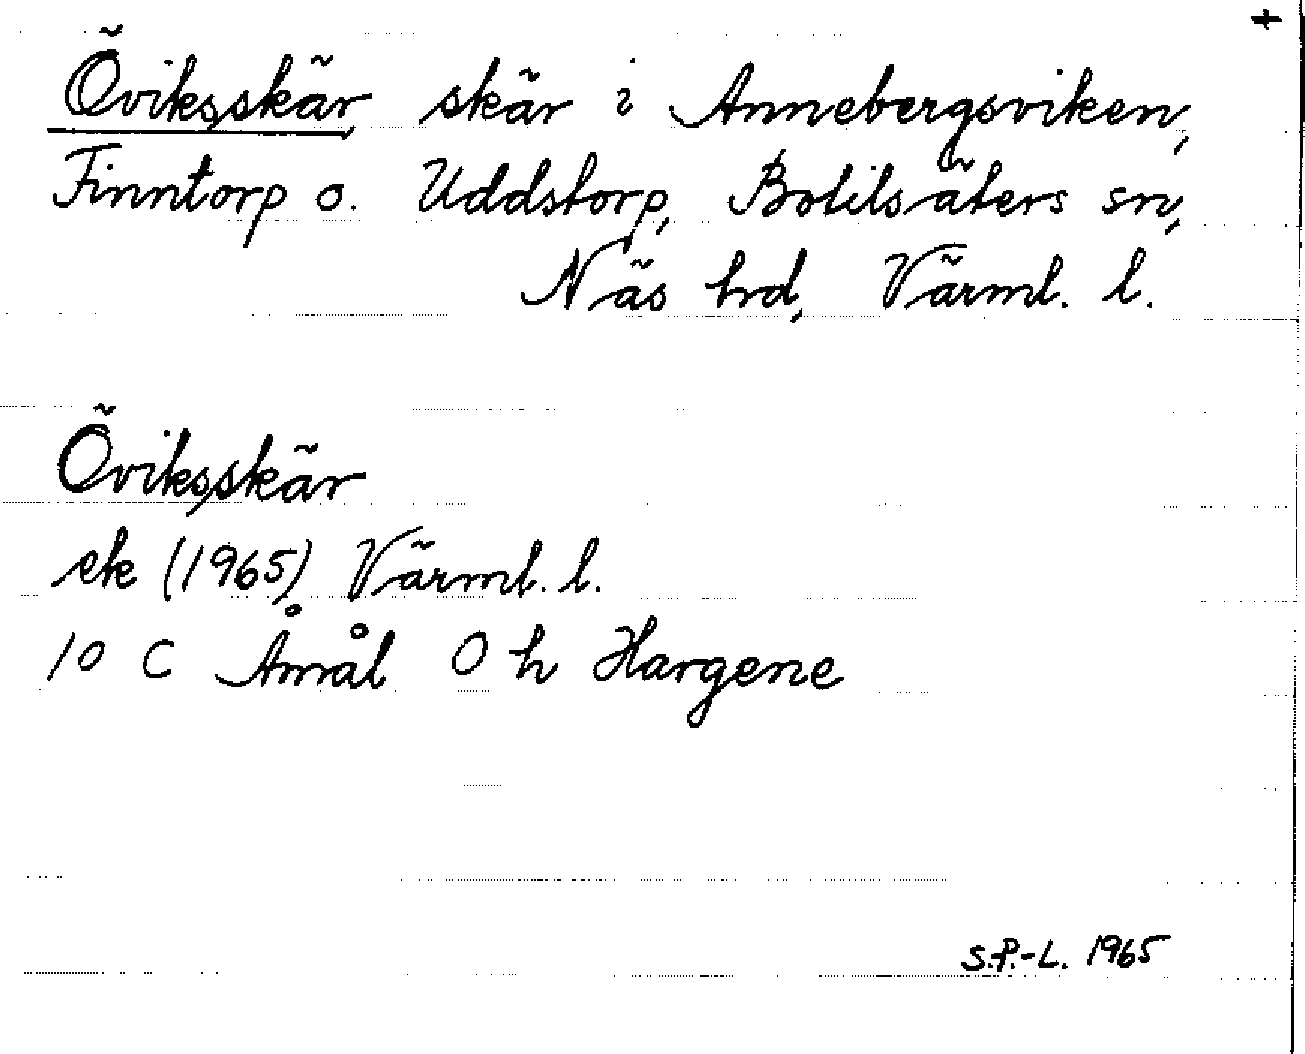 +
Öviksskär, skär i Annebergsviken,
Finntorp o. Uddstorp, Botilsäters sn,
Näs hrd, Värml. l.
Öviksskär
ek (1965) Värml. l.
10 C Åmål O h Hargene
S.P.-L. 1965